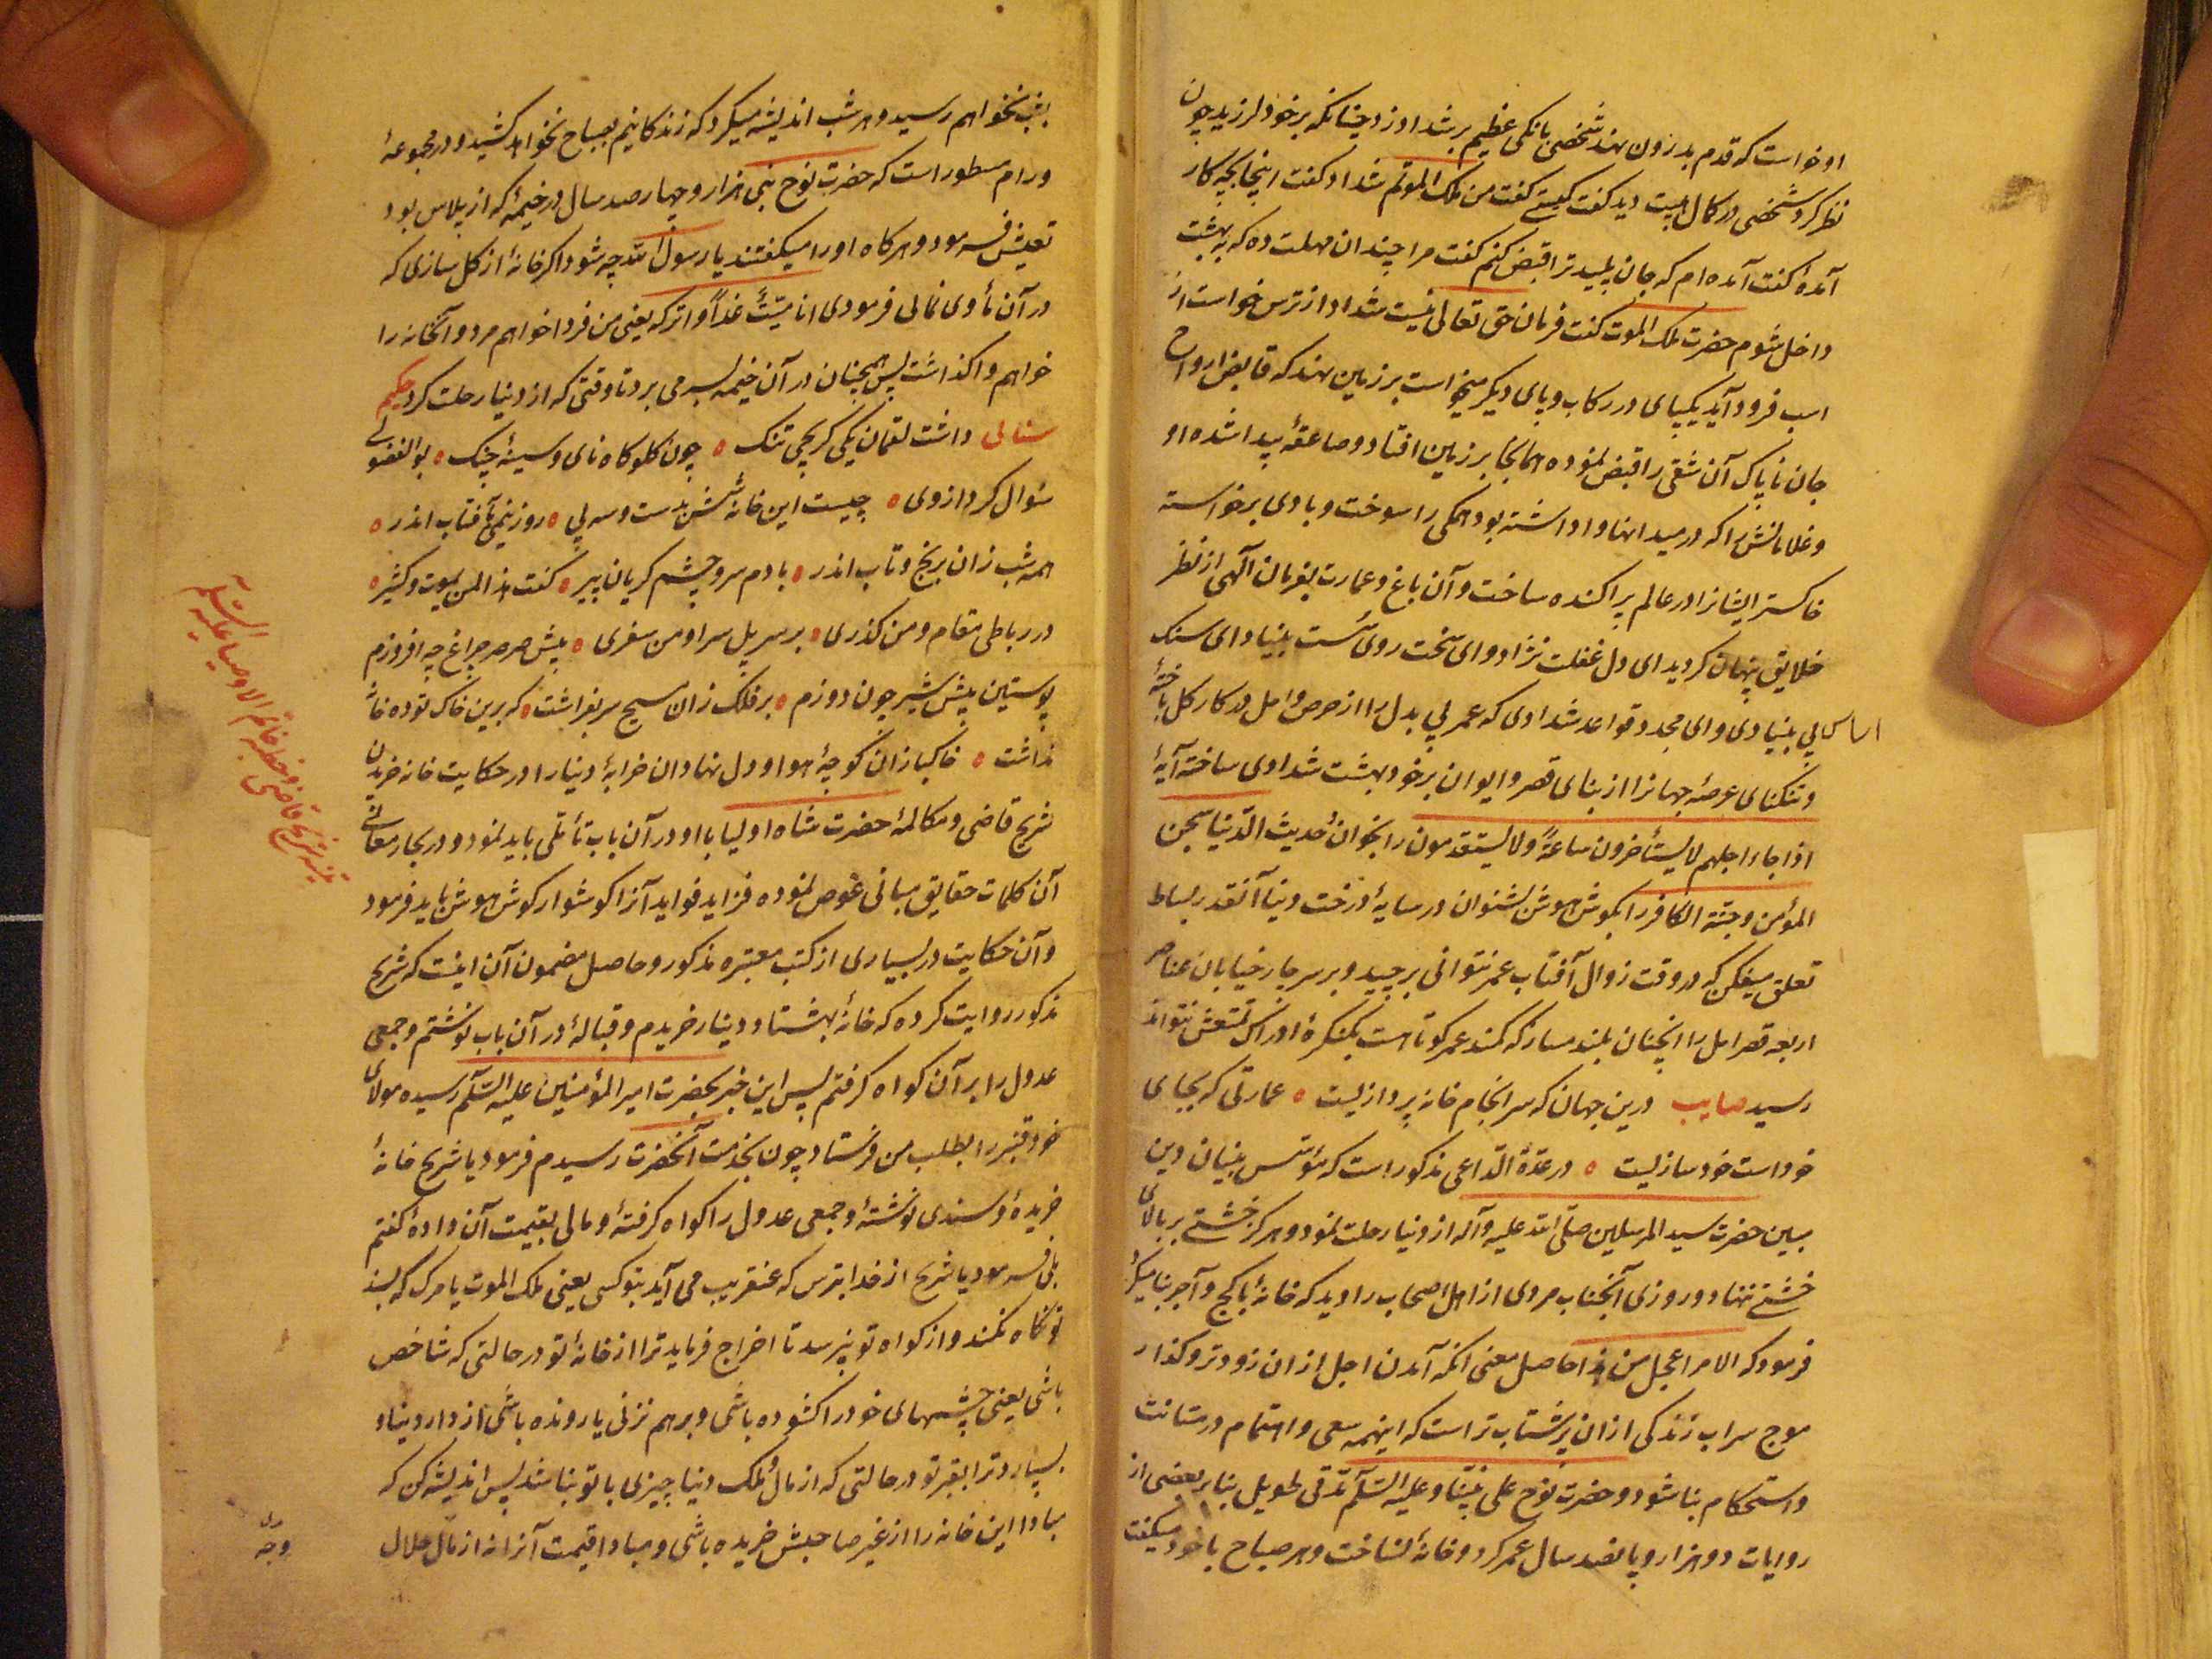 او خواست که قدم بدرون نهد شخصی بانکی عظیم بر شداد زد چنانکه بر خود لرزید چون
نظر کرد شخصی در کمال هیبت دید کفت کیستی کفت من ملک الموتم شداد کفت اینجا بچه کار
آمدهٔ کفت آمده ام که جان پلید ترا قبض کنم کفت مرا چندان مهلت ده که به بهشت
داخل شوم حضرت ملک الموت کفت فرمان حق تعالی نیست شداد از ترس خواست از
اسب فرود آید یکپای در رکاب و پای دیکر میخواست بر زمین نهد که قابض ارواح
جان ناپاک آن شقی را قبض نموده همانجا بر زمین افتاد و صاعقهٔ پیدا شده او
و غلامانش را که در میدانها وا داشته بود همکی را سوخت و بادی برخواسته
خاکستر ایشانرا در عالم پراکنده ساخت و آن باغ و عمارت بفرمان الهی از نظر
خلایق پنهان کردید ای دل غفلت نژاد و ای سخت روی سست بنیاد و ای سنک
اساس بی بنیادی و ای مجدد قواعد شدادی که عمر بی بدل را از حرص و امل در کار کل باختهٔ
و تنکنای عرصهٔ جهانرا از بنای قصر و ایوان بر خود بهشت شدادی ساخته آیهٔ
اذا جاء اجلهم لا یستأخرون ساعةً ولا یستقدمون را بخوان و حدیث الدّنیا سجن
المؤمن و جنّة الکافر را بکوش هوش بشنوان در سایهٔ درخت دنیا آنقدر بساط
تعلق میفکن که در وقت زوال آفتاب عمر نتوانی برچید و بر سر چار خیابان عناصر
اربعه قصر امل را آنچنان بلند مساز که کمند عمر کوتاهت بکنکرهٔ ادراک تمتعش نتواند
رسید صایب درین جهان که سرانجام خانه پردازیست ٥ عمارتی که بجای
خود است خود سازیست ٥ در عدّة الدّاعی مذکور است که مؤسس بنیان دین
مبین حضرت سید المرسلین صلّی الله علیه و آله از دنیا رحلت نمود و هرکز خشتی بر بالای
خشتی ننهاد و روزی آنجناب مردی از اهل اصحاب را دید که خانهٔ با کچ و آجر بنا میکرد
فرمود که الامر اعجل من هذا حاصل معنی آنکه آمدن اجل از ان زودتر و کذار
موج سراب زندکی از ان پرشتاب تر است که اینهمه سعی و اهتمام در متانت
و استحکام بنا شود و حضرت نوح علی نبیّنا و علیه السّلام مدّتی طویل بنا بر بعضی از
روایات دو هزار و پانصد سال عمر کرد و خانهٔ نساخت و هر صباح با خود میکفت
بشب نخواهم رسید و هر شب اندیشه میکرد که زندکانیم بصباح نخواهد کشید و در مجموعهٔ
ورام مسطور است که حضرت نوح نبی هزار و چهارصد سال در خیمهٔ که از پلاس بود
تعیش فرمود و هرکاه او را میکفتند یا رسول الله چه شود اکر خانهٔ از کل سازی که
در آن مأوی نمائی فرمودی انا میّتٌ غداً و اترکه یعنی من فردا خواهم مرد و آنخانه را
خواهم واکذاشت پس همچنان در آن خیمه بسر می برد تا وقتی که از دنیا رحلت کرد حکیم
سنائی داشت لقمان یکی کریچی تنک ٥ چون کلوکاه نای و سینهٔ چنک ٥ بوالفضولی
سؤال کرد از وی ٥ چیست این خانه شش بدست و سه پی ٥ روز نیمی بآفتاب اندر ٥
همه شب زان برنج و تاب اندر ٥ با دم سرد و چشم کریان پیر ٥ کفت هذا لمن یموت کثیر ٥
در رباطی مقام و من کذری ٥ بر سر پل سرا و من سفری ٥ پیش صرصر چراغ چه افروزم
پوستین پیش شیر چون دوزم ٥ بر فلک زان مسیح سر بفراشت ٥ که برین خاک توده خانه
نداشت ٥ خاکبازان کوچهٔ هوا و دل نهادان خرابهٔ دنیا را در حکایت خانه خریدن
شریح قاضی و مکالمهٔ حضرت شاه اولیا با او در آن باب تأمّلی باید نمود و در بحار معانی
آن کلمات حقایق مبانی غوص نموده فراید فواید آنرا کوشوار کوش هوش باید فرمود
و آن حکایت در بسیاری از کتب معتبره مذکور و حاصل مضمون آن اینست که شریح
مذکور روایت کرده که خانهٔ بهشتاد دینار خریدم و قبالهٔ در آن باب نوشتم و جمعی
عدول را بر آن کواه کرفتم پس این خبر بحضرت امیر المؤمنین علیه السّلام رسیده مولای
خود قنبر را بطلب من فرستاد چون بخدمت آنحضرت رسیدم فرمود یا شریح خانهٔ
خریدهٔ و سندی نوشتهٔ و جمعی عدول را کواه کرفتهٔ و مالی بقیمت آن دادهٔ کفتم
بلی فرمود یا شریح از خدا بترس که عنقریب می آید بتو کسی یعنی ملک الموت یا مرک که بسند
تو نکاه نکند و از کواه تو نپرسد تا اخراج فرماید ترا از خانهٔ تو در حالتی که شاخص
باشی یعنی چشمهای خود را کشوده باشی و برهم نزنی یا رونده باشی از دار دنیا و
بسپارد ترا بقبر تو در حالتی که از مال و ملک دنیا چیزی با تو نباشد پس اندیشه کن که
مبادا این خانه را از غیر صاحبش خریده باشی و مبادا قیمت آنرا نه از مال حلال
شریح قاضی و خطبه خاتم الاوصیا علیه السّلام